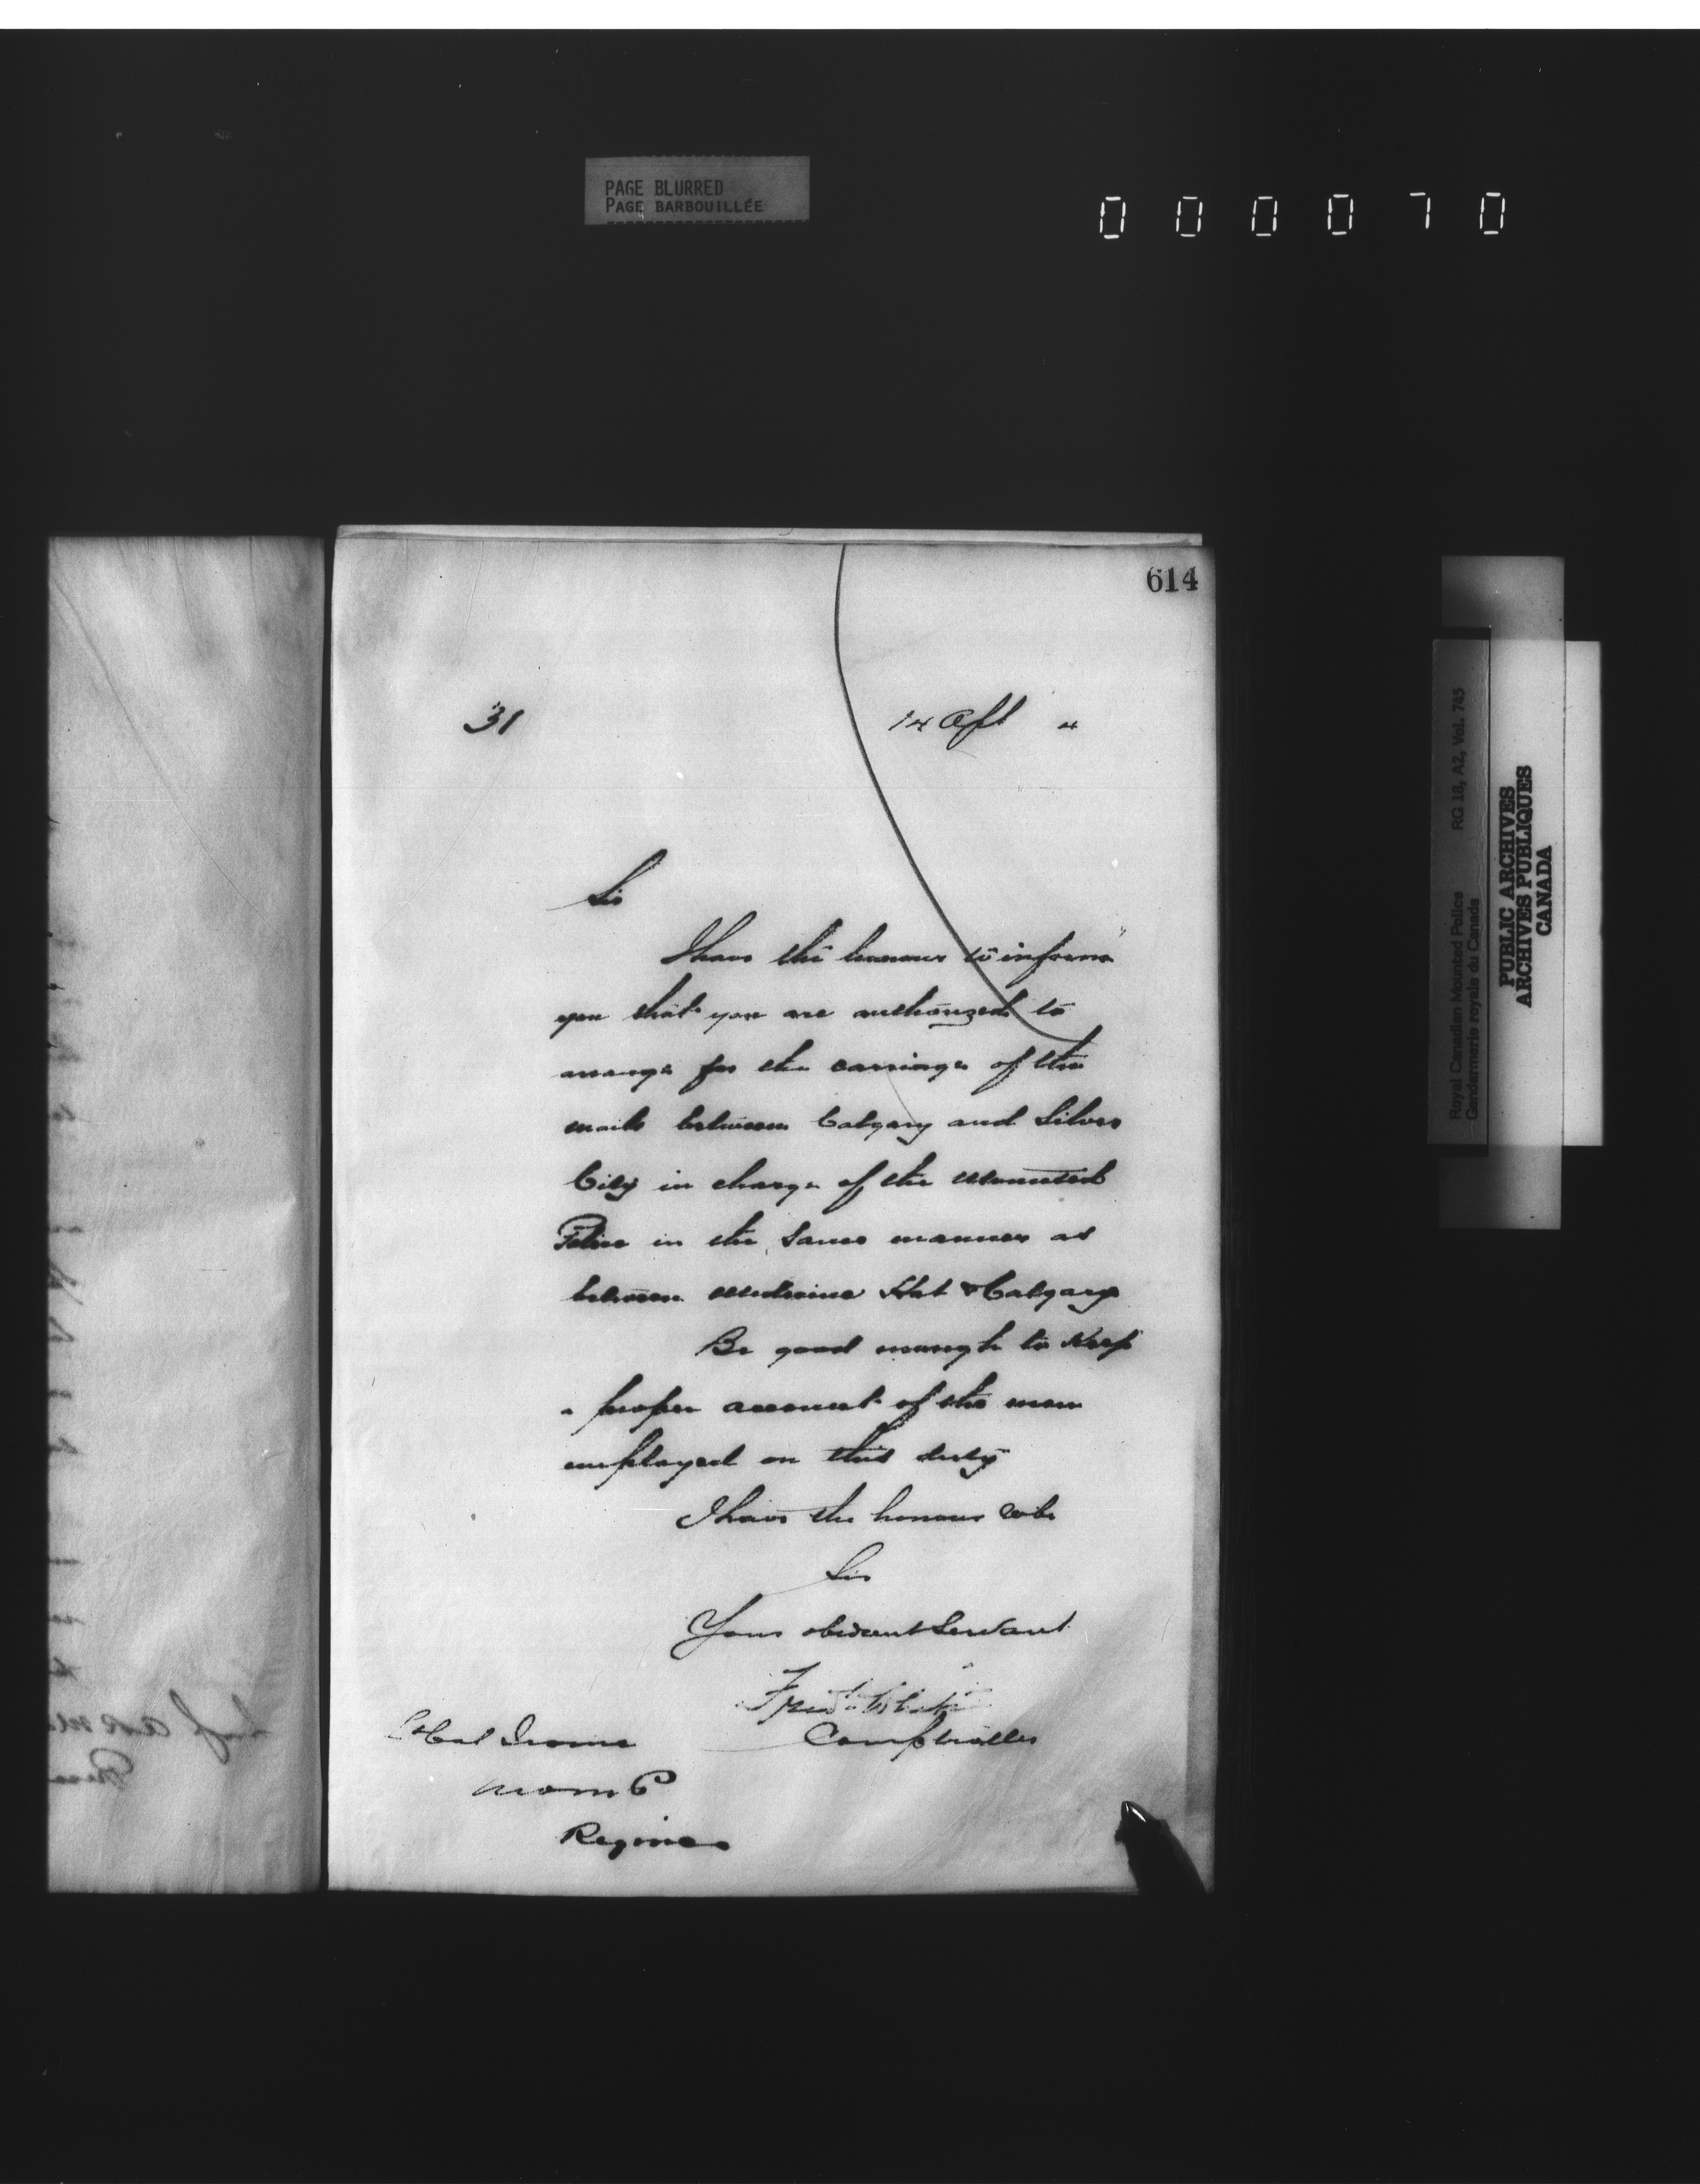 PAGE BLURRED
PAGE BARBOUILLÉE
000070
614
31
14 Apl 4
Sir
I have the honour to inform
you that you are authorized to
arrange for the carriage of the
mails between Calgary and Silver
City in charge of the Mounted
Police in the same manner as
between Medicine Hat & Calgary
Be good enough to keep
a proper account of the men
employed on this duty
I have the honour to be
Sir
Your obedient Servant
Fred White
Comptroller
Lt Col Irvine
NWMP
Regina
Royal Canadian Mounted Police RG 18, A2, Vol. 745
Gendarmerie royale du Canada
PUBLIC ARCHIVES
ARCHIVES PUBLIQUES
CANADA